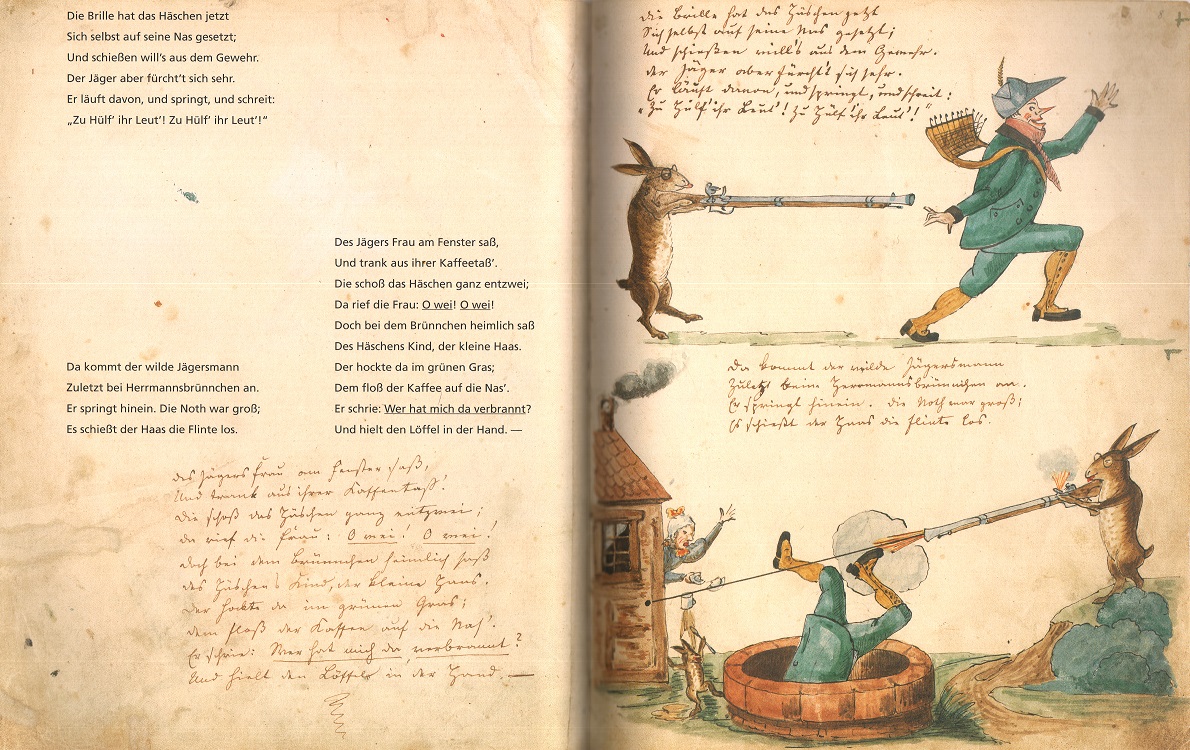 Die Brille hat das Häschen jetzt
Sich selbst auf seine Nas gesetzt;
Und schießen will’s aus dem Gewehr.
Der Jäger aber fürcht’t sich sehr.
Er läuft davon, und springt, und schreit:
„Zu Hülf’ ihr Leut’! Zu Hülf’ ihr Leut’!“
Da kommt der wilde Jägersmann
Zuletzt bei Herrmannsbrünnchen an.
Er springt hinein. Die Noth war groß;
Es schießt der Haas die Flinte los.
Des Jägers Frau am Fenster saß,
Und trank aus ihrer Kaffeetaß’.
Die schoß das Häschen ganz entzwei;
Da rief die Frau: O wei! O wei!
Doch bei dem Brünnchen heimlich saß
Des Häschens Kind, der kleine Haas.
Der hockte da im grünen Gras;
Dem floß der Kaffee auf die Nas’.
Er schrie: Wer hat mich da verbrannt?
Und hielt den Löffel in der Hand. —
des Jägers Frau am Fenster saß,
Und trank aus ihrer Kaffeetaß’.
Die schoß das Häschen ganz entzwei;
da rief die Frau: O wei! O wei!
doch bei dem Brünnchen heimlich saß
des Häschens Kind, der kleine Haas.
der hockte da im grünen Gras;
dem floß der Kaffee auf die Nas’.
Er schrie: Wer hat mich da verbrannt?
Und hielt den Löffel in der Hand. —
die Brille hat das Häschen jetzt
Sich selbst auf seine Nas gesetzt;
Und schießen will’s aus dem Gewehr.
der Jäger aber fürcht’t sich sehr.
Er läuft davon, und springt, und schreit:
„Zu Hülf’ ihr Leut’! Zu Hülf’ ihr Leut’!“
Da kommt der wilde Jägersmann
Zuletzt beim Herrmannsbrünnchen an.
Er springt hinein. die Noth war groß;
Es schießt der Haas die Flinte los.